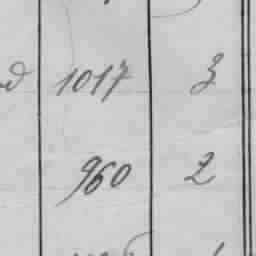 1017 3
960 2